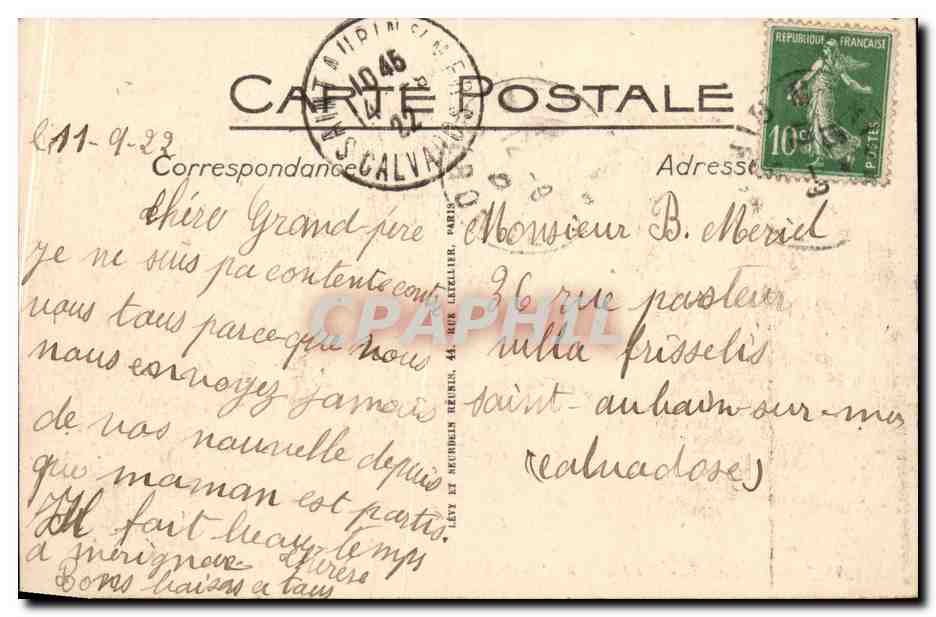 CARTE POSTALE
SAINT AUBIN S/ MER
10 45
22
CALVADOS
REPUBLIQUE FRANÇAISE
10c
POSTES
le 11-9-22
Correspondance
Adresse
chére Grand-père
Je ne suis pa contente contre
vous tous parce-que vous
nous envoyez jamais
de vos nouvelle depuis
que maman est partis.
Il fait beau temps
a mérignac
Bons baisers a tous
Monsieur B. Meriel
36 rue pasteur
villa frisselis
saint-aubain-sur-mer
(calvadose)
LÉVY ET NEURDEIN RÉUNIS, 44, RUE LETELLIER, PARIS
CPAPHIL